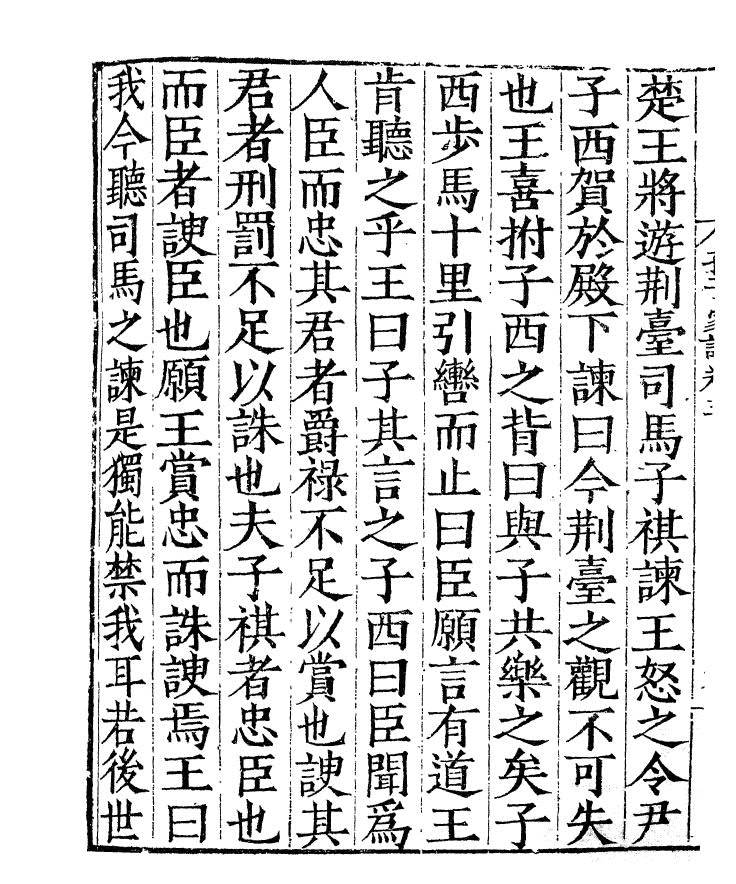 楚王將遊荆臺司馬子祺諫王怒之令尹
子西賀於殿下諫曰今荆臺之觀不可失
也王喜拊子西之背曰與子共樂之矣子
西步馬十里引轡而止曰臣願言有道王
肯聽之乎王曰子其言之子西曰臣聞爲
人臣而忠其君者爵祿不足以賞也諛其
君者刑罰不足以誅也夫子祺者忠臣也
而臣者諛臣也願王賞忠而誅諛焉王曰
我今聽司馬之諫是獨能禁我耳若後世